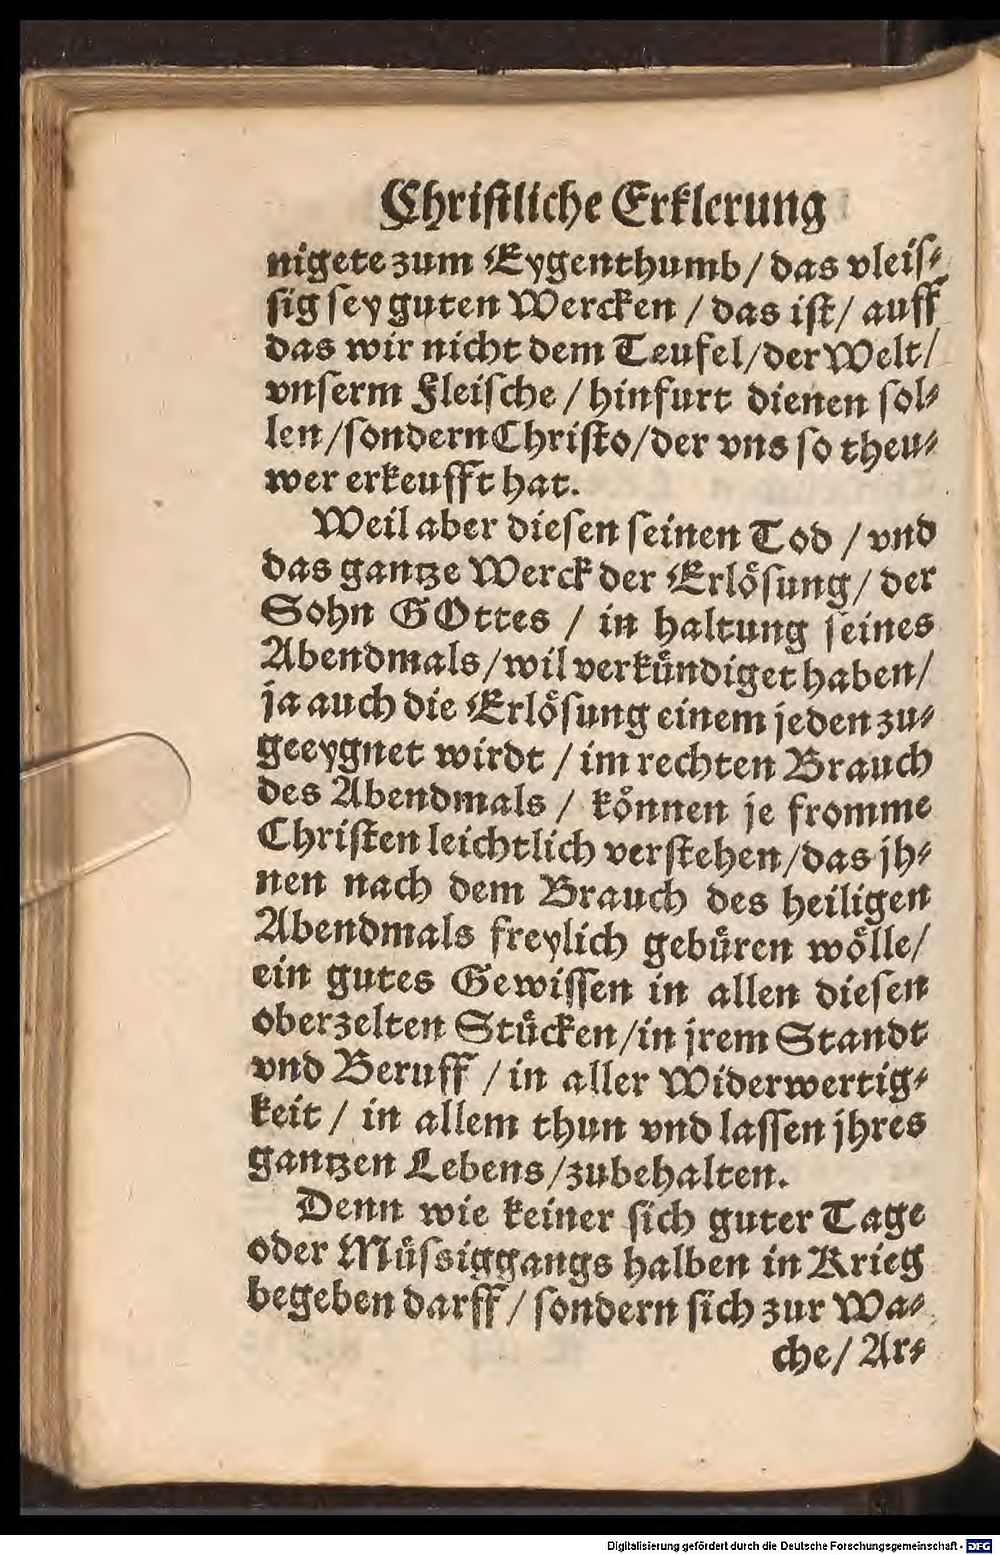 Christliche Erklerung
nigete zum Eygenthumb / das vleis⸗
sig sey guten Wercken / das ist / auff
das wir nicht dem Teufel / der Welt /
vnserm Fleische / hinfurt dienen sol⸗
len / sondern Christo / der vns so theu⸗
wer erkeufft hat.
Weil aber diesen seinen Tod / vnd
das gantze Werck der Erlösung / der
Sohn GOttes / in haltung seines
Abendmals / wil verkündiget haben /
ja auch die Erlösung einem jeden zu⸗
geeygnet wirdt / im rechten Brauch
des Abendmals / können je fromme
Christen leichtlich verstehen / das jh⸗
nen nach dem Brauch des heiligen
Abendmals freylich gebüren wölle /
ein gutes Gewissen in allen diesen
oberzelten Stücken / in jrem Standt
vnd Beruff / in aller Widerwertig⸗
keit / in allem thun vnd lassen jhres
gantzen Lebens / zubehalten.
Denn wie keiner sich guter Tage
oder Müssiggangs halben in Krieg
begeben darff / sondern sich zur Wa⸗
che / Ar⸗
Digitalisierung gefördert durch die Deutsche Forschungsgemeinschaft - DFG